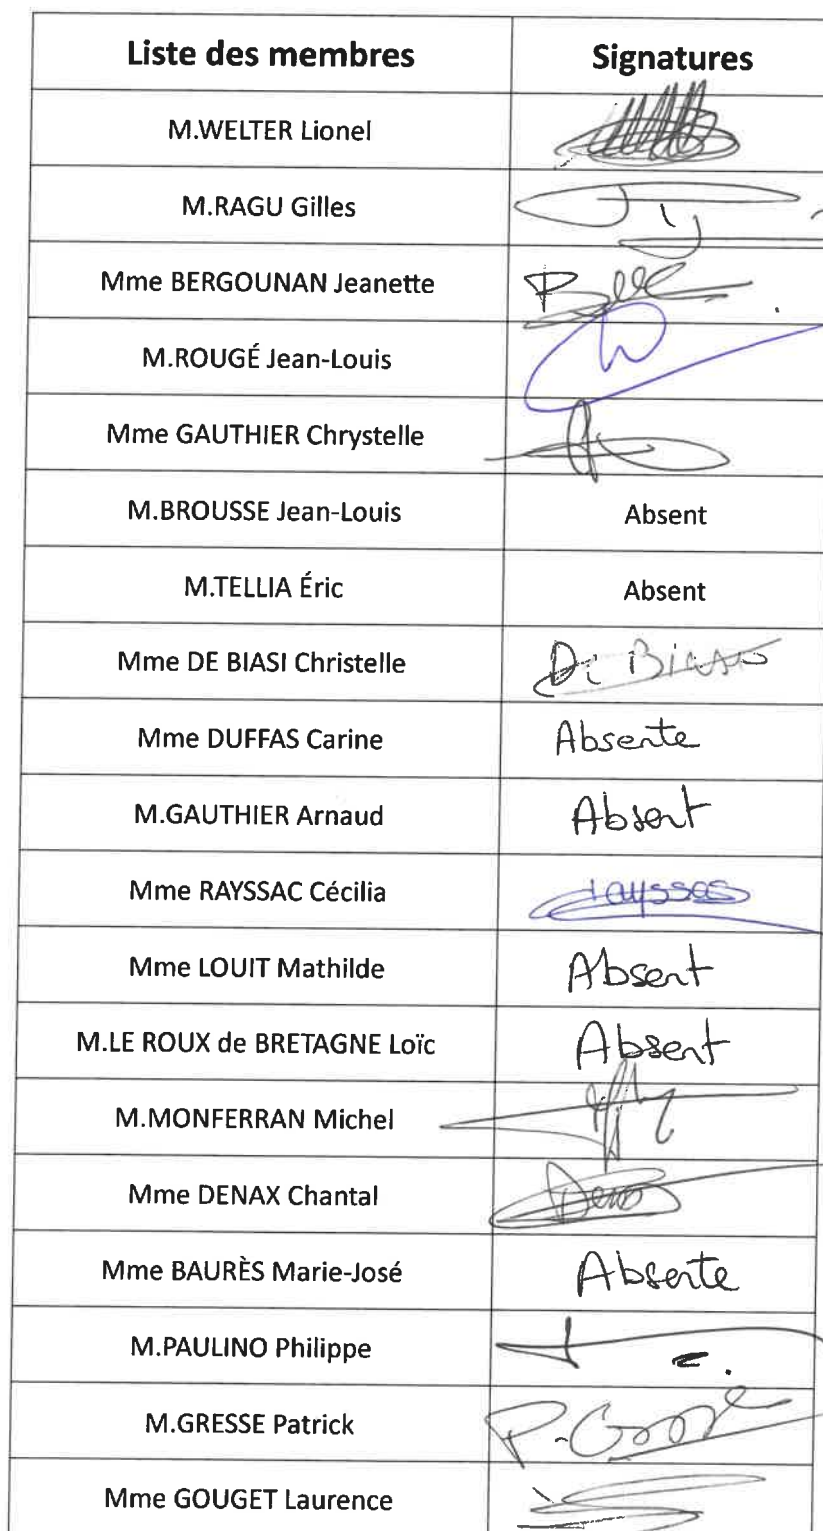 Liste des membres Signatures
M.WELTER Lionel
M.RAGU Gilles
Mme BERGOUNAN Jeanette
M.ROUGÉ Jean-Louis
Mme GAUTHIER Chrystelle
M.BROUSSE Jean-Louis Absent
M.TELLIA Éric Absent
Mme DE BIASI Christelle
Mme DUFFAS Carine Absente
M.GAUTHIER Arnaud Absent
Mme RAYSSAC Cécilia
Mme LOUIT Mathilde Absent
M.LE ROUX de BRETAGNE Loïc Absent
M.MONFERRAN Michel
Mme DENAX Chantal
Mme BAURÈS Marie-José Absente
M.PAULINO Philippe
M.GRESSE Patrick
Mme GOUGET Laurence